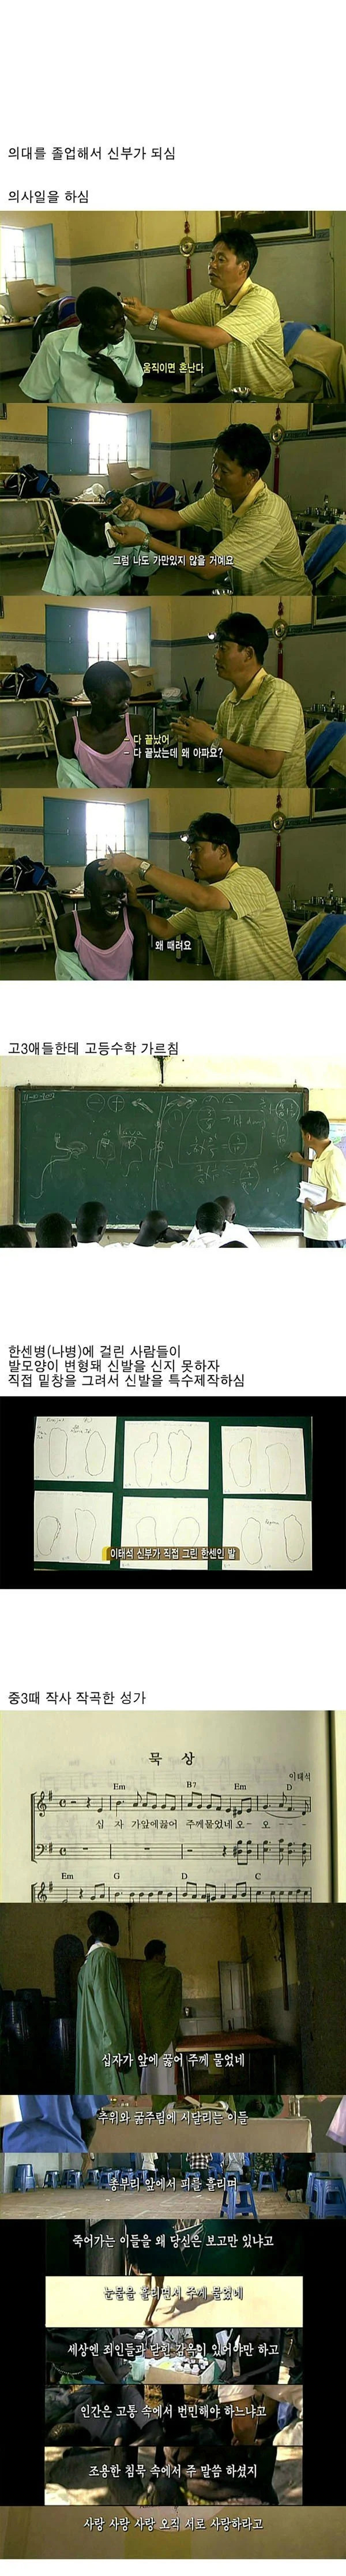 의대를 졸업해서 신부가 되심
의사일을 하심
움직이면 혼난다
그럼 나도 가만있지 않을 거예요
- 다 끝났어
- 다 끝났는데 왜 아파요?
왜 때려요
고3애들한테 고등수학 가르침
한센병(나병)에 걸린 사람들이
발모양이 변형돼 신발을 신지 못하자
직접 밑창을 그려서 신발을 특수제작하심
이태석 신부가 직접 그린 한센인 발
중3때 작사 작곡한 성가
묵 상
이태석
Em B7 Em D
십 자 가앞에꿇어 주께물었네 오- 오 - - -
Em G D C
십자가 앞에 꿇어 주께 물었네
추위와 굶주림에 시달리는 이들
총부리 앞에서 피를 흘리며
죽어가는 이들을 왜 당신은 보고만 있냐고
눈물을 흘리면서 주께 물었네
세상엔 죄인들과 닫힌 감옥이 있어야만 하고
인간은 고통 속에서 번민해야 하느냐고
조용한 침묵 속에서 주 말씀 하셨지
사랑 사랑 사랑 오직 서로 사랑하라고